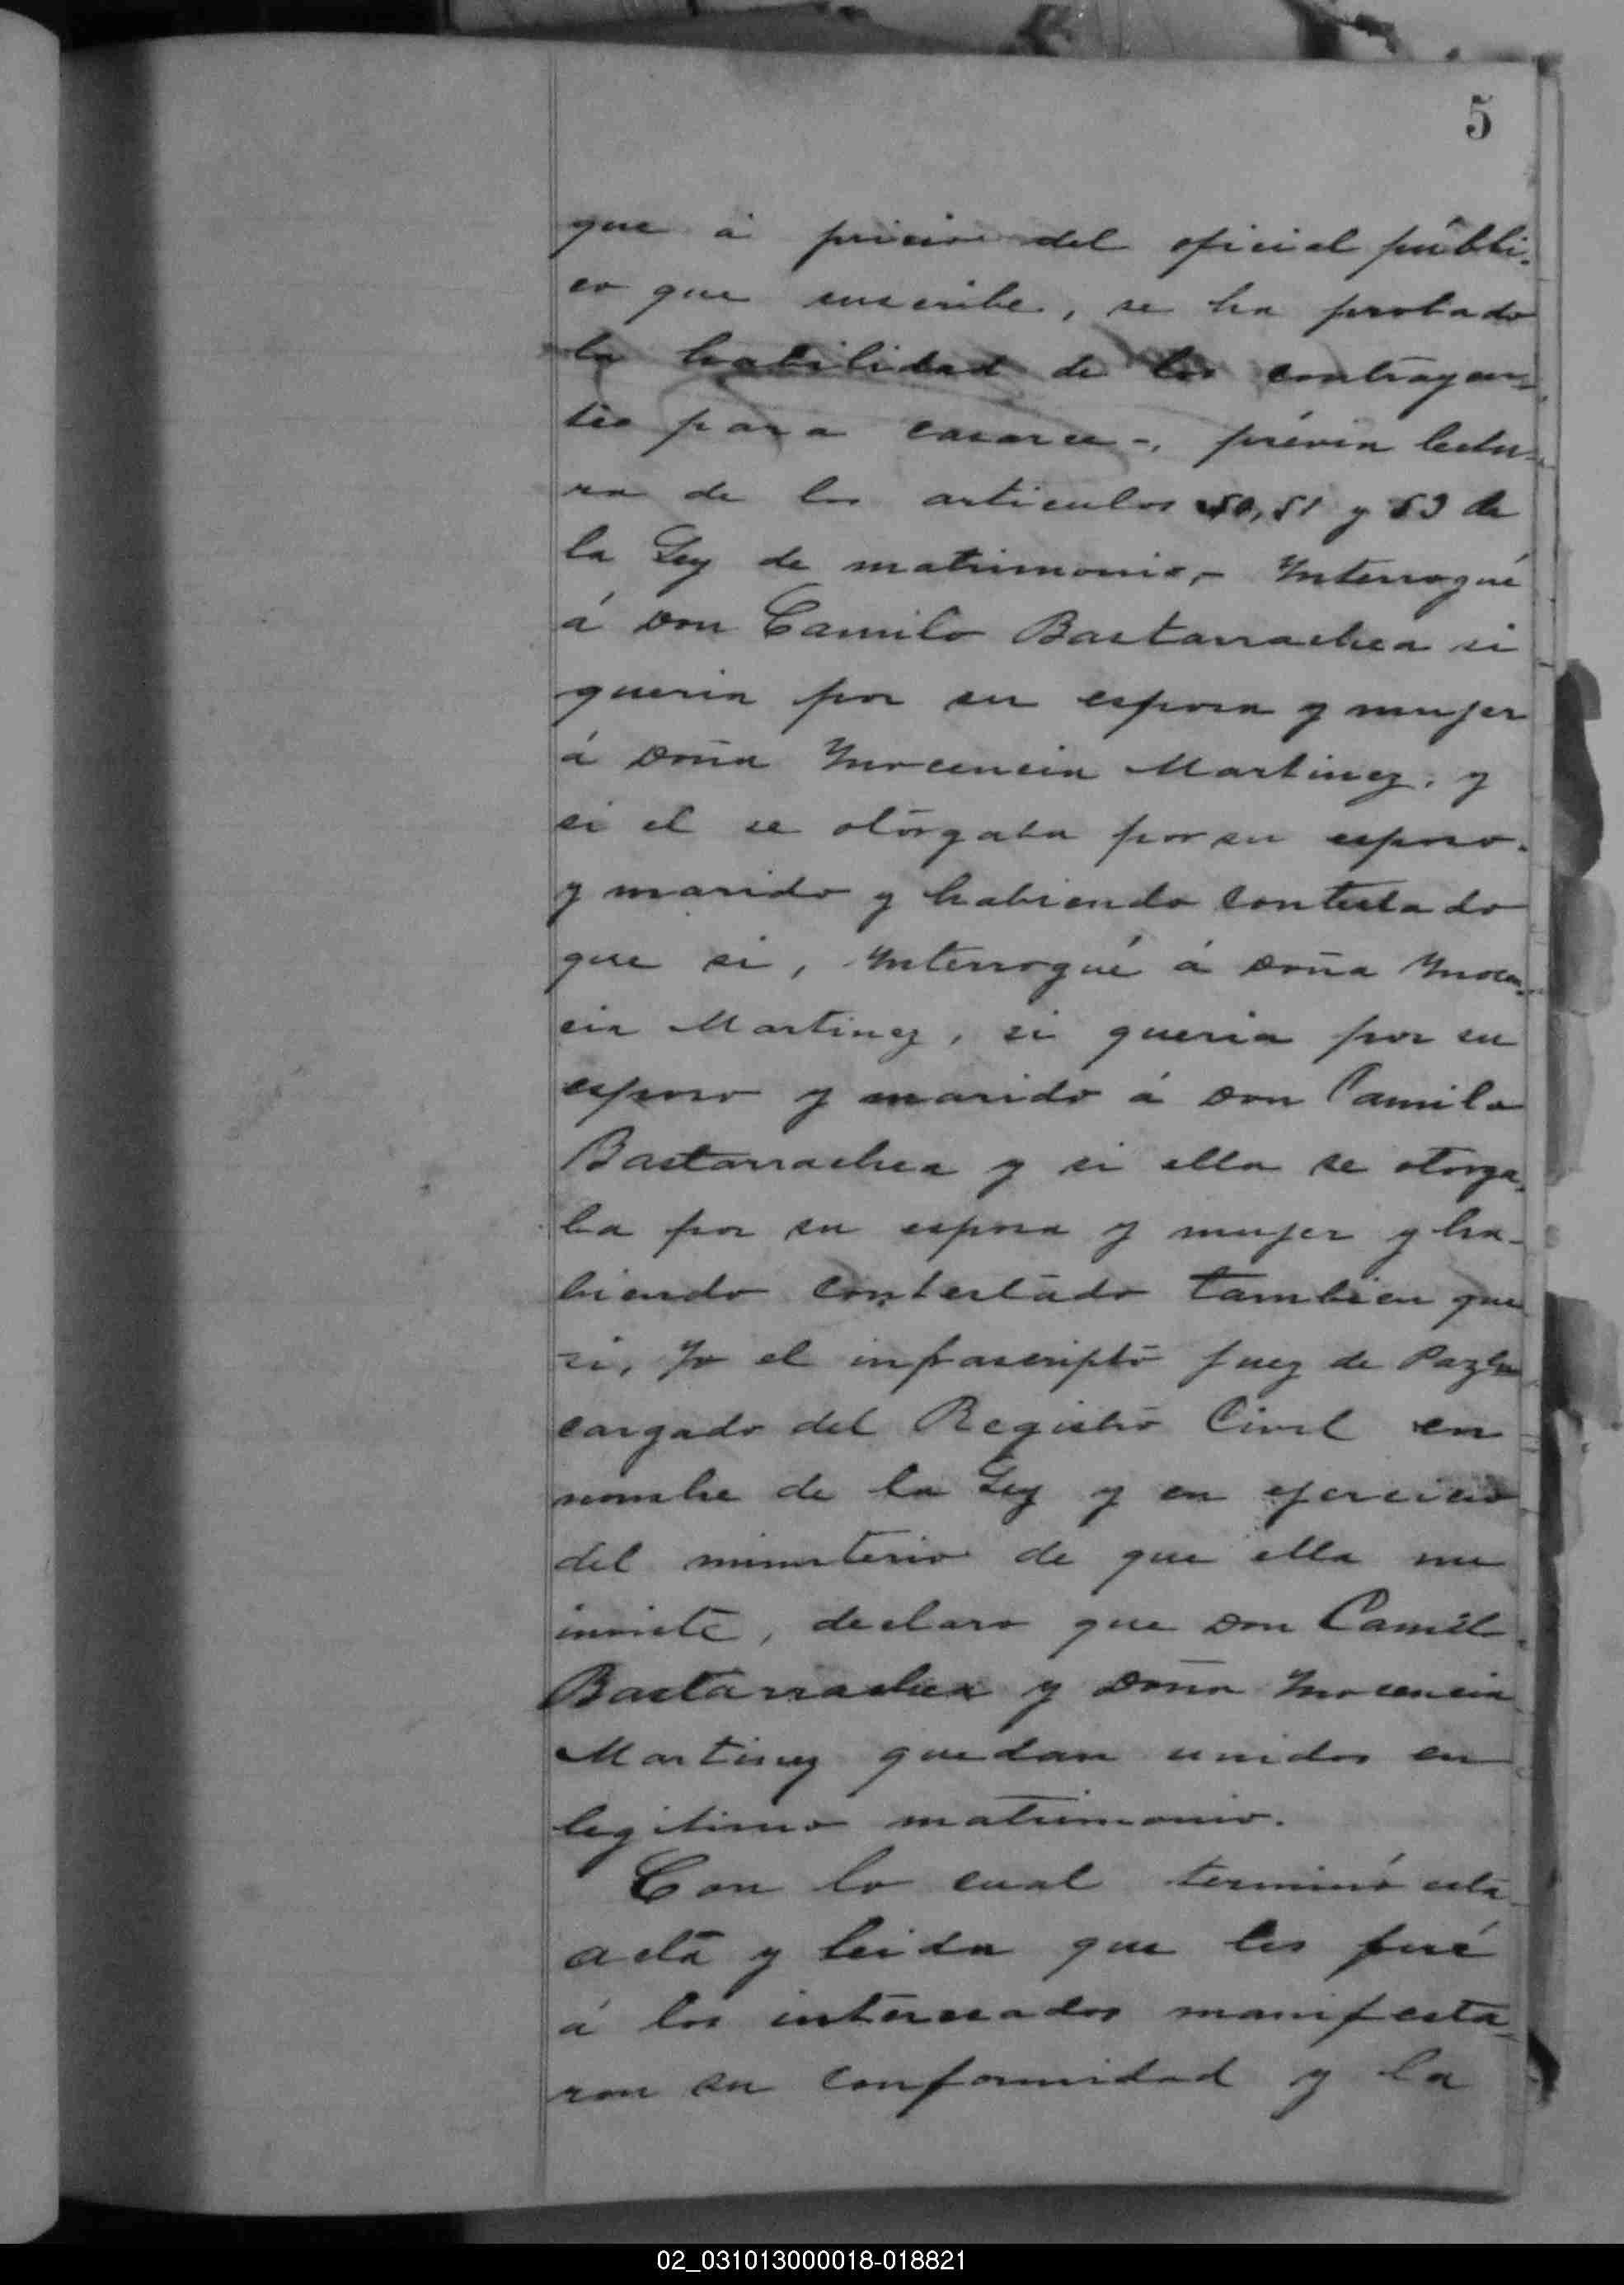 5
que á juicio del oficial públi-
co que suscribe, se ha probado
la habilidad de los contrayen-
tes para casarse -, prévia lectu-
ra de los articulos 50, 51 y 53 de
la Ley de matrimonio, - Interrogué
á Don Camilo Bastarrachea si
queria por su esposa y mujer
á Doña Inocencia Martinez, y
si el se otorgaba por su esposo
y marido y habiendo contestado
que si, Interrogué á Doña Inocen-
cia Martinez, si queria por su
esposo y marido á Don Camilo
Bastarrachea y si ella se otorga-
ba por su esposa y mujer y ha-
biendo contestado tambien que
si, Yo el infrascripto Juez de Paz En
cargado del Registro Civil en
nombre de la Ley y en ejercicio
del ministerio de que ella me
inviste, declaro que Don Camilo
Bastarrachea y Doña Inocencia
Martinez quedan unidos en
legitimo matrimonio.
Con lo cual terminó esta
acta y leida que les fué
á los interesados manifesta-
ron su conformidad y la
02_031013000018-018821